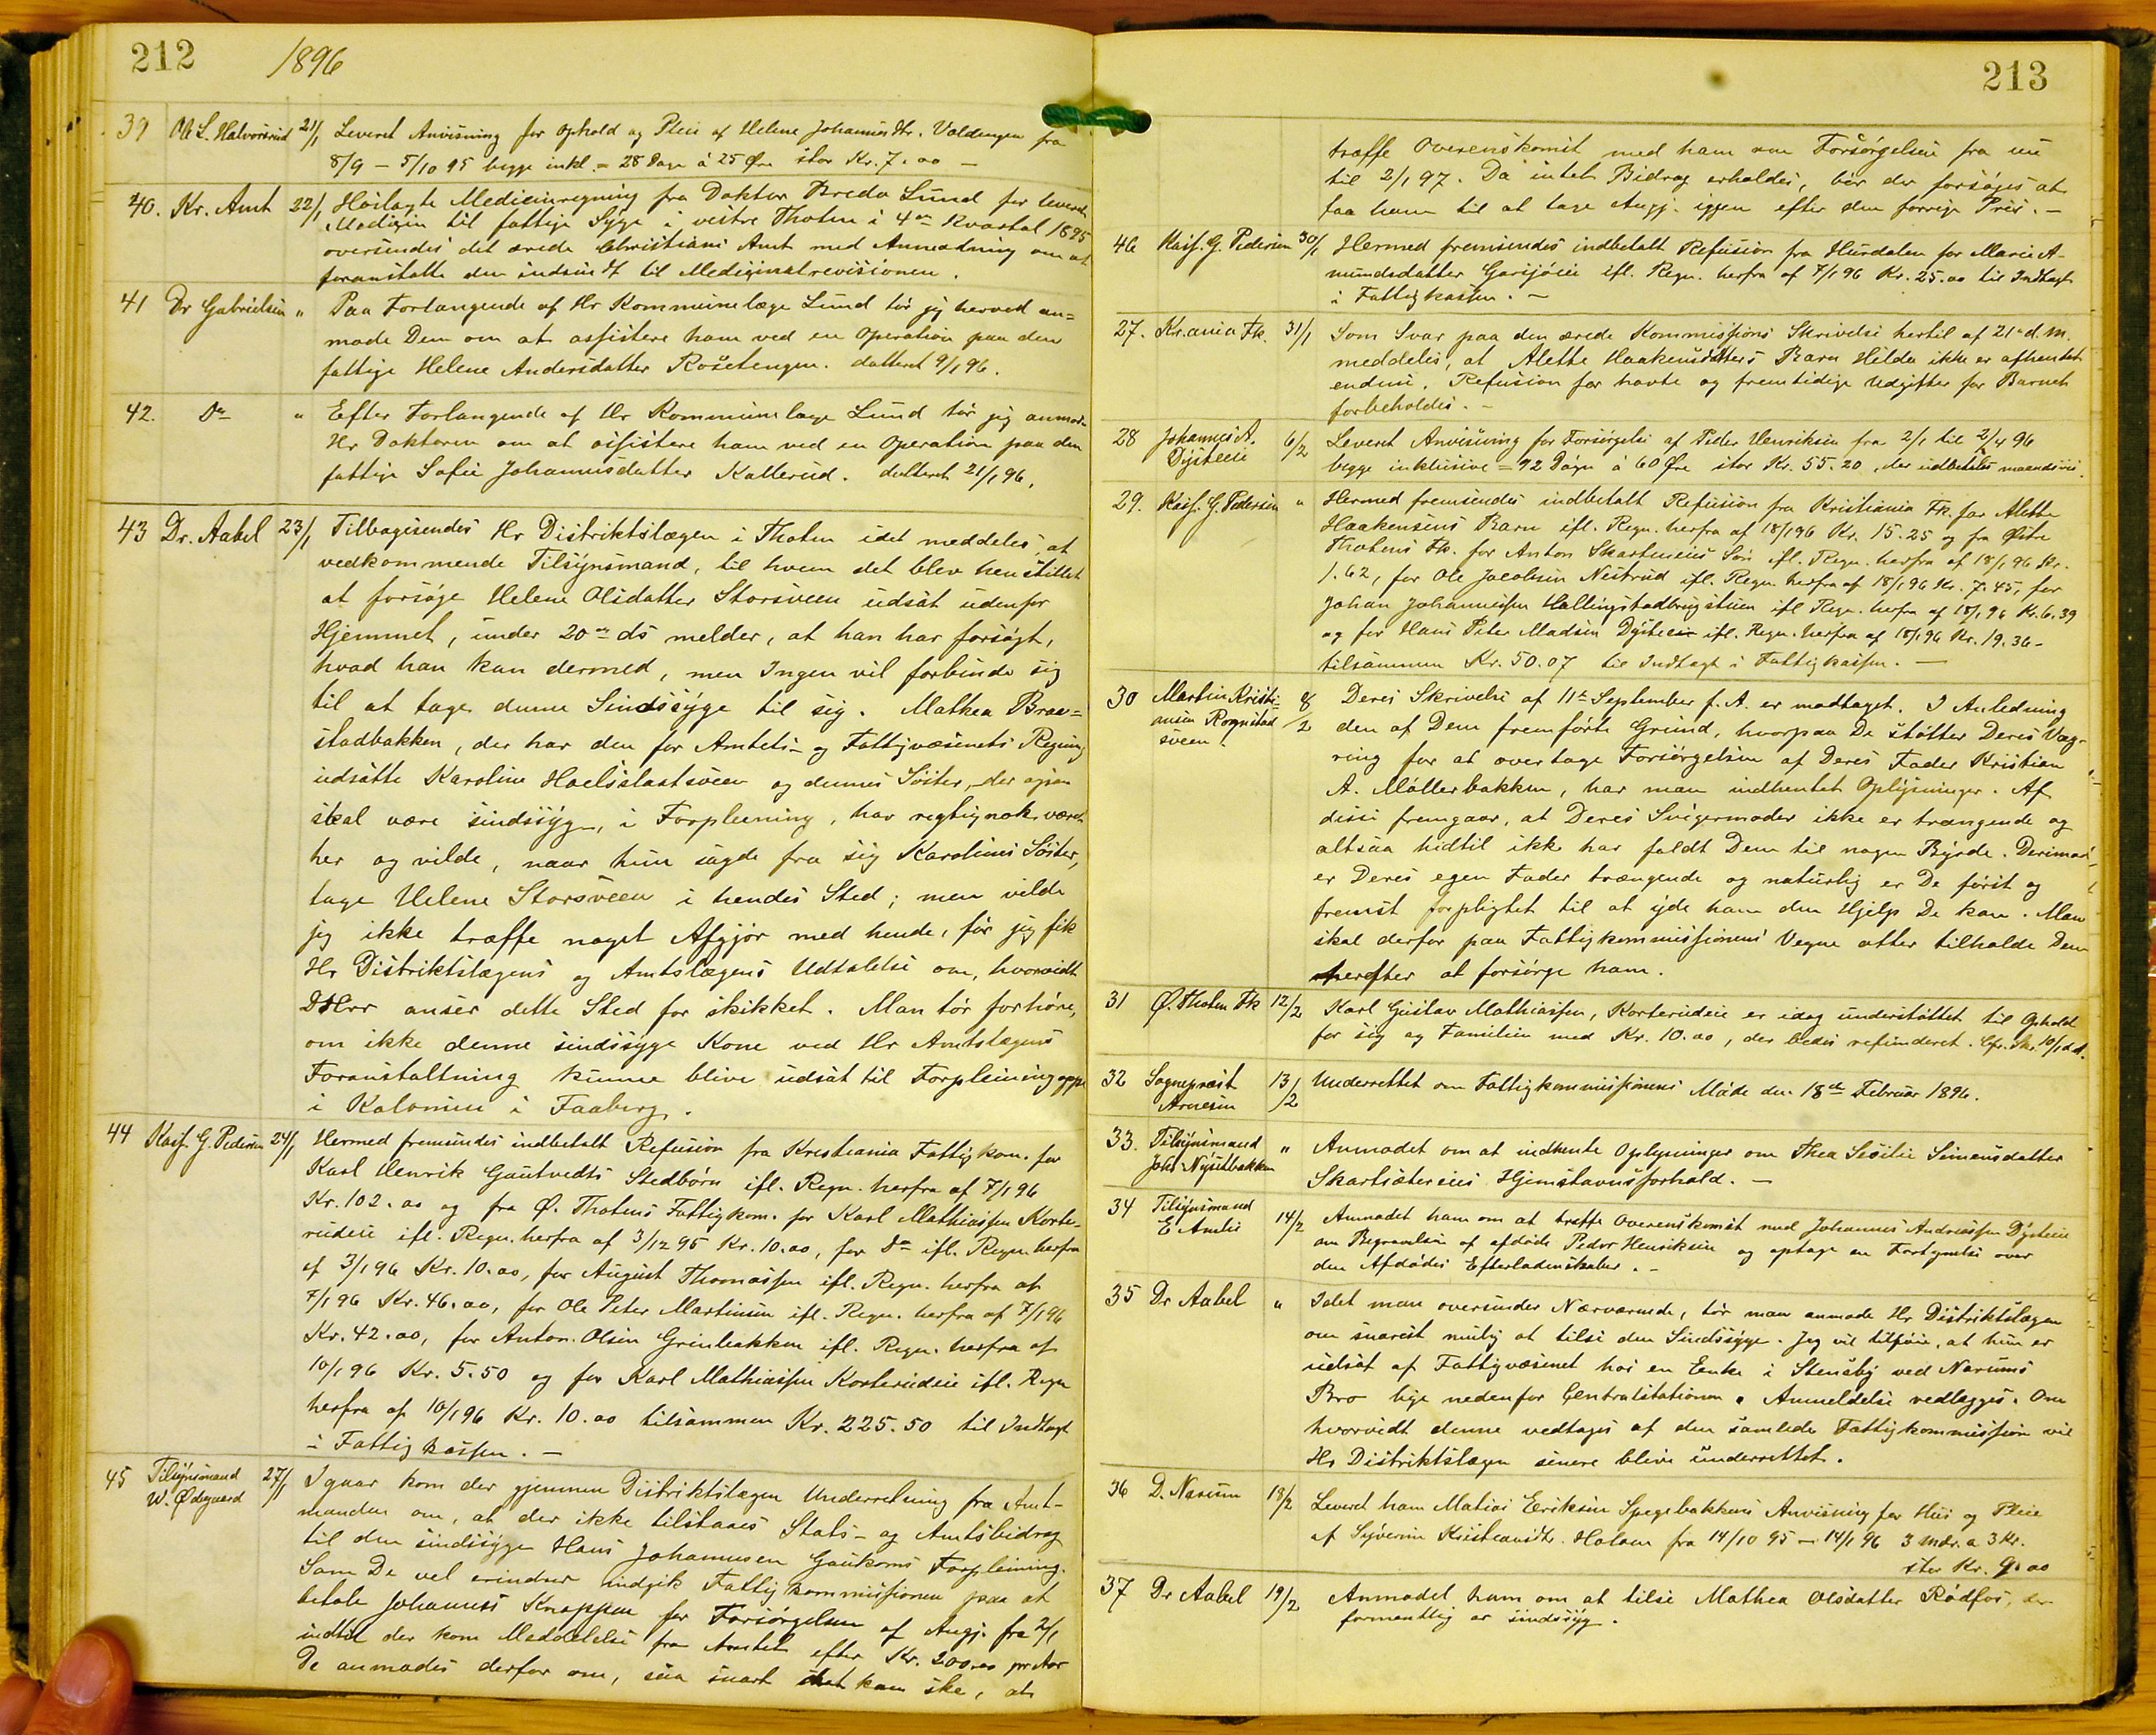 212 1896
39 Ole L. Halvorsrud 21/1 Leveret Anvisning for Ophold og Pleie af Helene Johannesdtr. Valdengen fra
8/9 – 5/10 95 begge inkl. = 28 Dage á 25 Øre stor Kr. 7.00 –
40. Kr. Amt 22/1 Hoslagte Medicinregning fra Doktor Breda Lund for leveret
Medicin til fattige Syge i vestre Thoten i 4de Kvartal 1895
oversendes det ærede Christians Amt med Anmodning om at
foranstalte den indsendt til Medicinalrevisionen.
41 Dr Gabrielsen " Paa Forlangende af Hr Kommunelæge Lund tør jeg herved an=
mode Dem om at assistere ham ved en Operation paa den
fattige Helene Andersdatter Rosetengen. datteret 9/1 96.
42. Do " Efter Forlangende af Hr Kommunelæge Lund tør jeg anmode
Hr Doktoren om at assistere ham ved en Operation paa den
fattige Sofie Johannesdatter Kallerud. datteret 21/1 96.
43 Dr. Aabel 23/1 Tilbagesendes Hr Distriktslægen i Thoten idet meddeles, at
vedkommende Tilsynsmand, til hvem det blev henstillet
at forsøge Helene Olsdatter Storsveen udsat udenfor
Hjemmet, under 20de ds melder, at han har forsøgt,
hvad han kan dermed, men Ingen vil forbinde sig
til at tage denne Sindssyge til sig. Mathea Braa=
stadbakken, der har den for Amtets- og Fattigvæsenets Regning
udsatte Karoline Hoelsslaatsveen og dennes Søster, der ogsaa
skal være sindssyg, i Forpleining, har regtignok været
her og vilde, naar hun sagde fra sig Karolines Søster,
tage Helene Storsveen i hendes Sted; men vilde
jeg ikke træffe noget Afgjør med hende, før jeg fik
Hr Distriktslægens og Amtslægens Udtalelse om, hvorvidt
DHrr anser dette Sted for skikket. Man tør forhøre,
om ikke denne sindssyge Kone ved Hr Amtslægens
Foranstaltning kunne blive udsat til Forpleining oppe
i Kolonien i Faaberg.
44 Kass. G. Pedersen 24/1 Hermed fremsendes indbetalt Refusion fra Kristiania Fattigkom. for
Karl Henrik Gautvedts Stedbørn ifl. Regn. herfra af 7/1 96
Kr. 102.00 og fra Ø. Thotens Fattigkom. for Karl Mathiassen Korte-
rudeie ifl. Regn. herfra af 3/12 95 Kr. 10.00, for Do ifl. Regn. herfra
af 3/1 96 Kr. 10.00, for August Thomassen ifl. Regn. herfra af
7/1 96 Kr. 46.00, for Ole Peter Martinsen ifl. Regn. herfra af 7/1 96
Kr. 42.00, for Anton Olsen Grinbakken ifl. Regn. herfra af
10/1 96 Kr. 5.50 og for Karl Mathiassen Korterudeie ifl. Regn
herfra af 10/1 96 Kr. 10.00 tilsammen Kr. 225.50 til Indtægt
i Fattigkassen. –
45 Tilsynsmand W. Ødegaard 27/1 Igaar kom der gjennem Distriktslægen Underretning fra Amt-
manden om, at der ikke tilstaaes Stats- og Amtsbidrag
til den sindssyge Hans Johannesen Gaukoms Forpleining.
Som De vel erindrer indgik Fattigkommissionen paa at
betale Johannes Knappen for Forsørgelsen af Angj. fra 2/1
indtil der kom Meddelelse fra Amtet efter Kr. 200.00 pr Aar
De anmodes derfor om, saa snart det kan ske, at
213
træffe Overenskomst med ham om Forsørgelsen fra nu
til 2/1 97. Da intet Bidrag erholdes, bør der forsøges at
faa ham til at tage Angj. igjen efter den forrige Pris. –
46 Kass. G. Pedersen 30/1 Hermed fremsendes indbetalt Refusion fra Hurdalen for Marie A-
mundsdatter Garsjøeie ifl. Regn. herfra af 7/1 96 Kr. 25.00 til Indtægt
i Fattigkassen. –
27. Kr.ania Fk. 31/1 Som Svar paa den ærede Kommissions Skrivelse hertil af 21de d.M.
meddeles, at Alette Haakensdatters Barn Hilda ikke er afhentet
endnu. Refusion for havte og fremtidige Udgifter for Barnet
forbeholdes. –
28 Johannes A. Dysteeie 6/2 Leveret Anvisning for Forsørgelse af Peder Henriksen fra 2/1 til 2/4 96
begge inklusive = 92 Dage á 60 Øre stor Kr. 55.20, der udbetales maanedsvis.
29. Kass. G. Pedersen " Hermed fremsendes indbetalt Refusion fra Kristiania Fk. for Alette
Haakensens Barn ifl. Regn. herfra af 18/1 96 Kr. 15.25 og fra Østre
Thotens Fk. for Anton Skartseies Søn ifl. Regn. herfra af 18/1 96 Kr.
1.62, for Ole Jacobsen Nestrud ifl. Regn. herfra af 18/1 96 Kr. 7.45, for
Johan Johannessen Hallingstadbrugstuen ifl Regn. herfra af 18/1 96 Kr. 6.39
og for Hans Peter Madsen Dysteeie ifl. Regn. herfra af 18/1 96 Kr. 19.36 –
tilsammen Kr. 50.07 til Indtægt i Fattigkassen. –
30 Martin Kristi=ansen Rognstadsveen. 8/2 Deres Skrivelse af 11te September f. A. er modtaget. I Anledning
den af Dem fremførte Grund, hvorpaa De støtter Deres Væg-
ring for at overtage Forsørgelsen af Deres Fader Kristian
A. Møllerbakken, har man indhentet Oplysninger. Af
disse fremgaar, at Deres Svigermoder ikke er trængende og
altsaa hidtil ikke har faldt Dem til nogen Byrde. Derimod
er Deres egen Fader trængende og naturlig er De først og
fremst forpligtet til at yde ham den Hjelp De kan. Man
skal derfor paa Fattigkommissionens Vegne atter tilholde Dem
herefter at forsørge ham.
31 Ø. Thoten Fk 12/2 Karl Gustav Mathiassen, Korterudeie er idag understøttet til Ophold
for sig og Familien med Kr. 10.00, der bedes refunderet. Cfr. Skr. 10/1 d.A.
32 Sogneprest Arnesen 13/2 Underrettet om Fattigkommissionens Møde den 18de Februar 1896.
33. Tilsynsmand Johs Nysetbakken " Anmodet om at indhente Oplysninger om Thea Sesilie Simensdatter
Skartsætereies Hjemstavnsforhold. –
34 Tilsynsmand E Amlie 14/2 Anmodet ham om at træffe Overenskomst med Johannes Andreassen Dysteeie
om Begravelsen af afdøde Peder Henriksen og optage en Fortegnelse over
den Afdødes Efterladenskaber. –
35 Dr Aabel " Idet man oversender Nærværende, tør man anmode Hr Distriktslægen
om snarest mulig at tilse den Sindssyge. Jeg vil tilføie, at hun er
udsat af Fattigvæsenet hos en Enke i Stensby ved Narums
Bro lige nedenfor Centralstationen. Anmeldelse vedlægges. Om
hvorvidt denne vedtages af den samlede Fattigkommission vil
Hr Distriktslægen senere blive underrettet.
36 D. Narum 18/2 Leveret ham Matias Eriksen Spegebakkens Anvisning for Hus og Pleie
af Syverine Kristiansdtr. Holom fra 14/10 95 – 14/1 96 3 Mdr. a 3 Kr.
stor Kr. 9.00
37 Dr Aabel 19/2 Anmodet ham om at tilse Mathea Olsdatter Rødfos, der
formentlig er sindssyg.